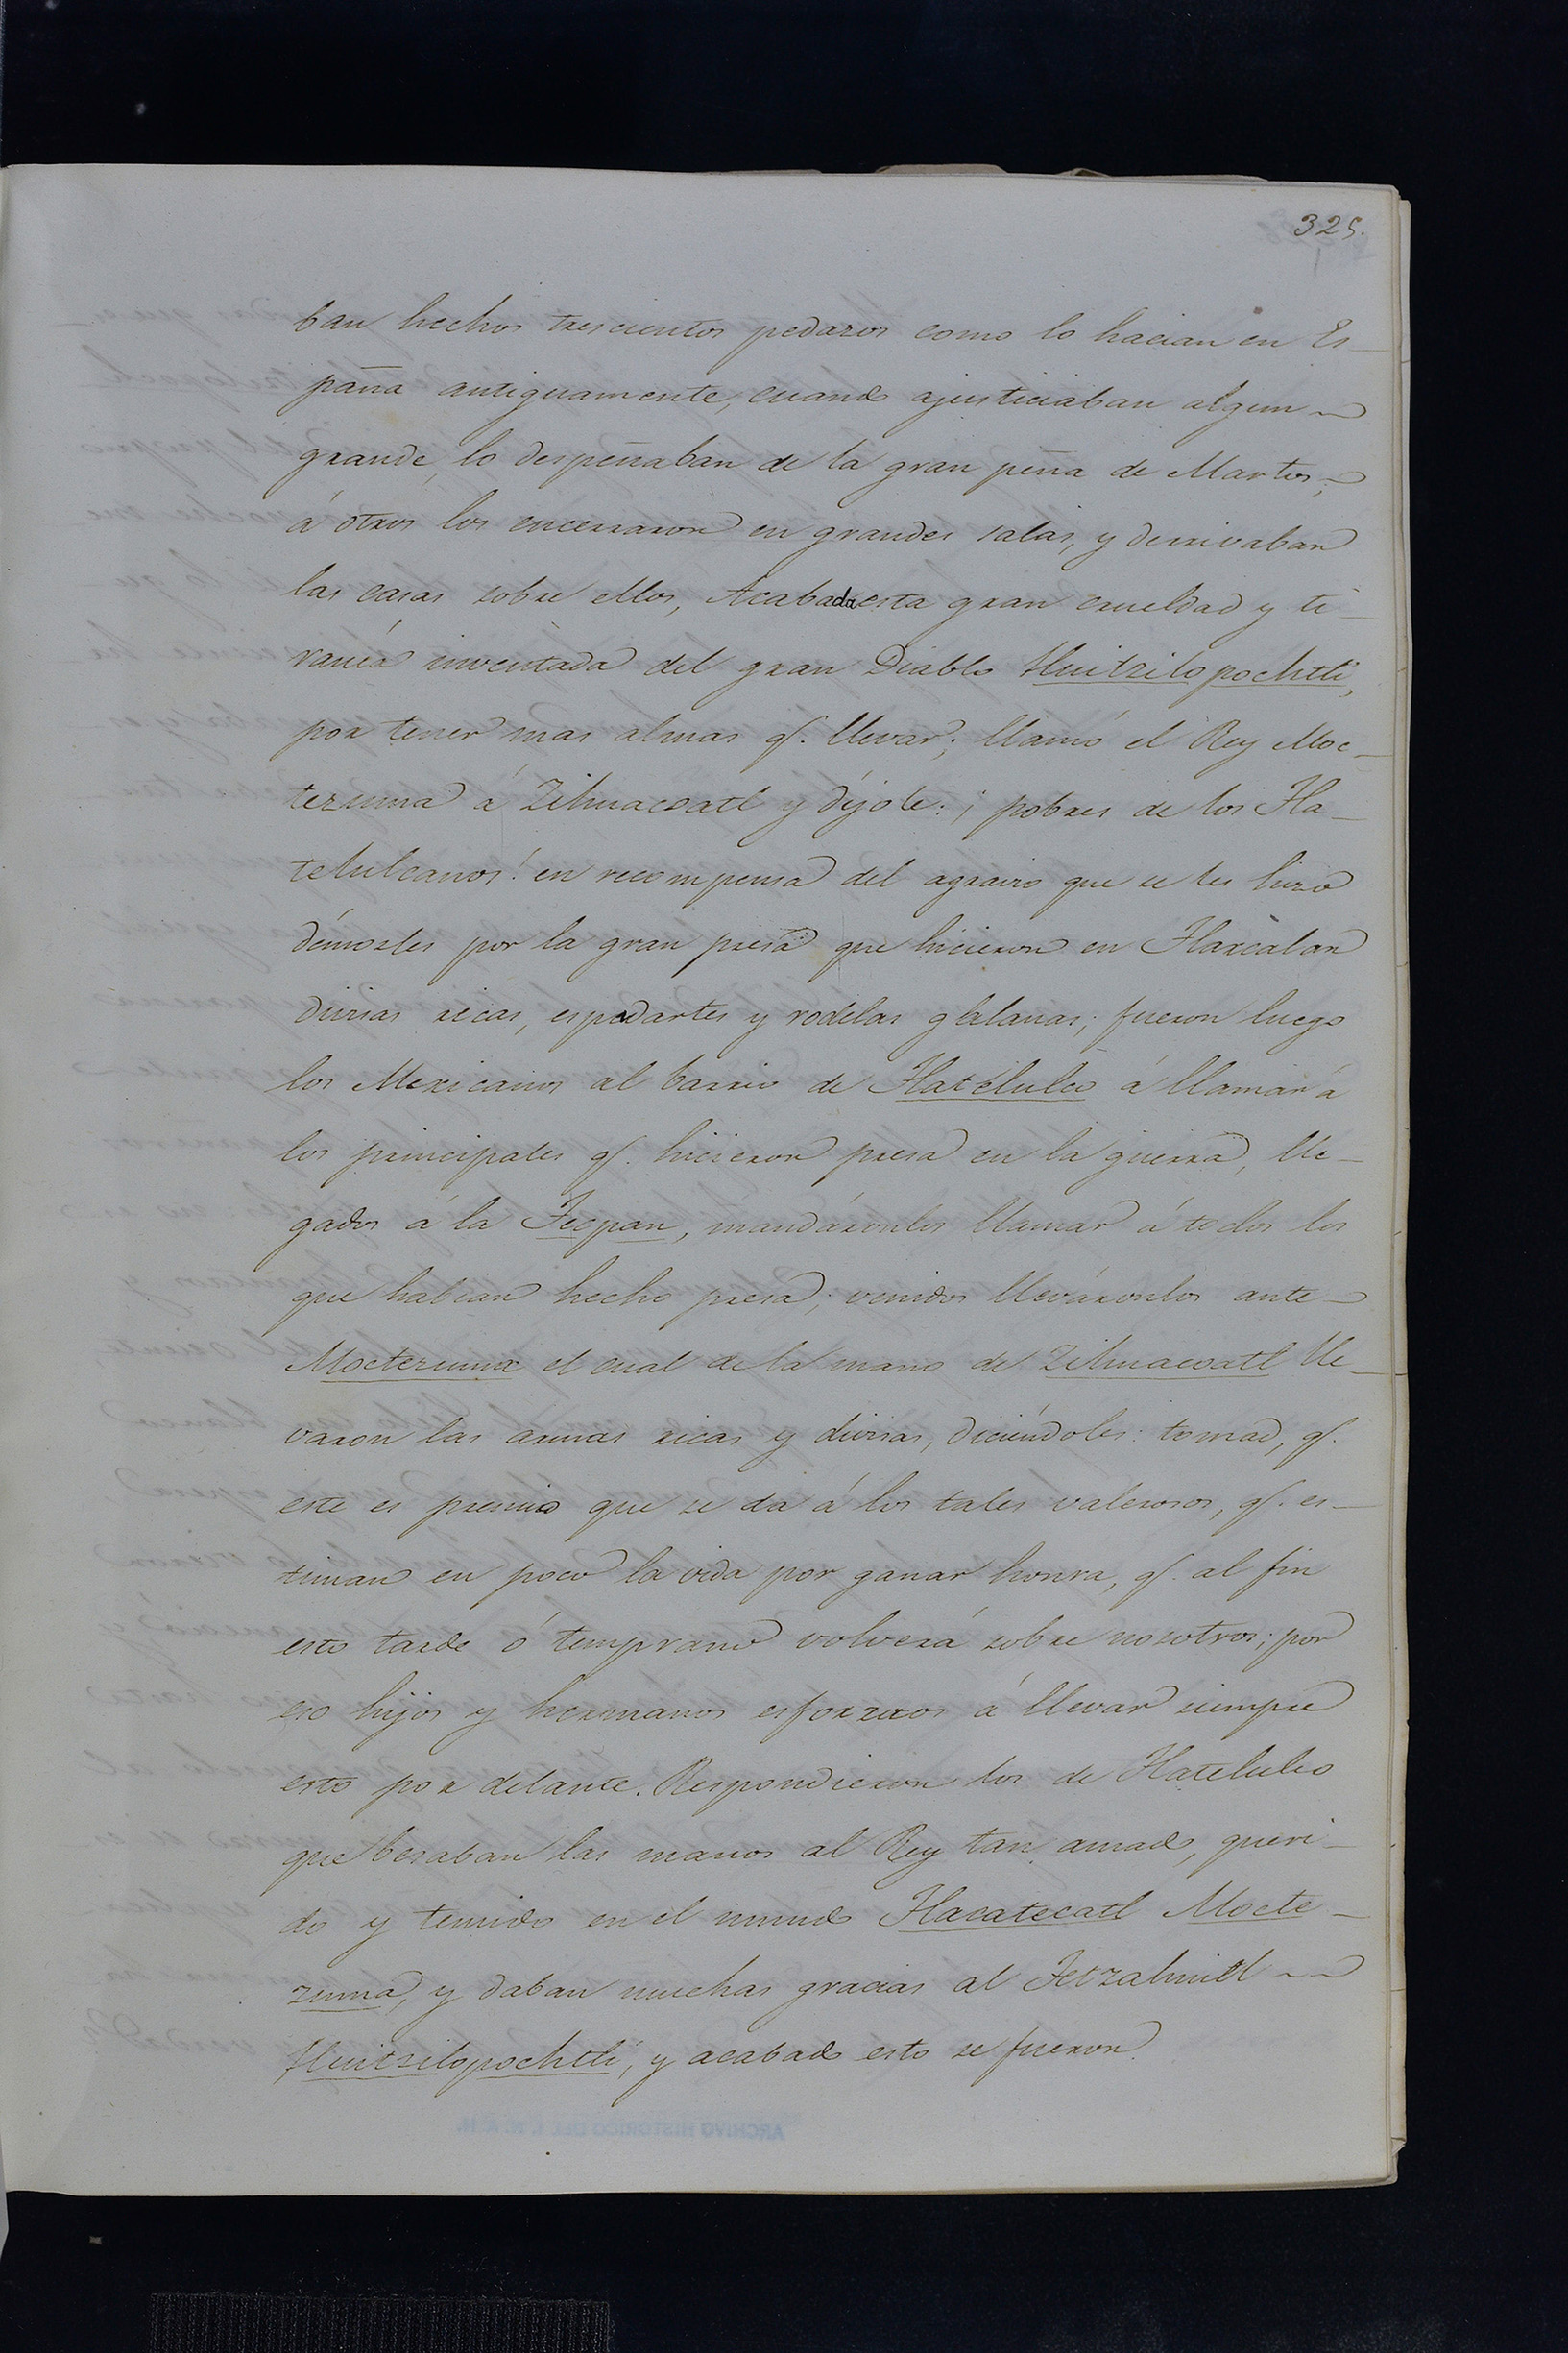 325.
ban hechos trescientos pedazos como lo hacian en Es-
paña antiguamente, cuando ajusticiaban algun
grande, lo despeñaban de la gran peña de Martos;
á otros los encerraron en grandes salas, y derrivaban
las casas sobre ellos, Acabada esta gran crueldad y ti-
ranía inventada del gran Diablo Huitzilopochtli,
por tener mas almas q. llevar; llamó el Rey Moc-
tezuma á Zihuacoatl y díjole: ¡pobres de los Tla-
telulcanos! en recompensa del agravio que se les hizo
démosles por la gran presa que hicieron en Tlaxcalan
divisas ricas, espadartes y rodelas galanas; fueron luego
los Mexicanos al barrio de Tlatelulco á llamar á
los principales q. hicieron presa en la guerra, lle-
gados á la Tecpan, mandáronlos llamar á todos los
que habian hecho presa; venidos lleváronlos ante
Moctezuma el cual de la mano de Zihuacoatl lle-
varon las armas ricas y divisas, diciéndoles: tomad, q.
este es premio que se da á los tales valerosos, q. es-
timan en poco la vida por ganar honra, q. al fin
esto tarde ó temprano volverá sobre nosotros; por
eso hijos y hermanos esforzaos á llevar siempre
esto por delante. Respondieron los de Tlatelulco
que besaban las manos al Rey tan amado, queri-
do y temido en el mundo Tlacatecatl Mocte-
zuma, y daban muchas gracias al Tetzahuitl
Huitzilopochtli, y acabado esto se fueron.
ARCHIVO HISTORICO DEL I. N. A. H.